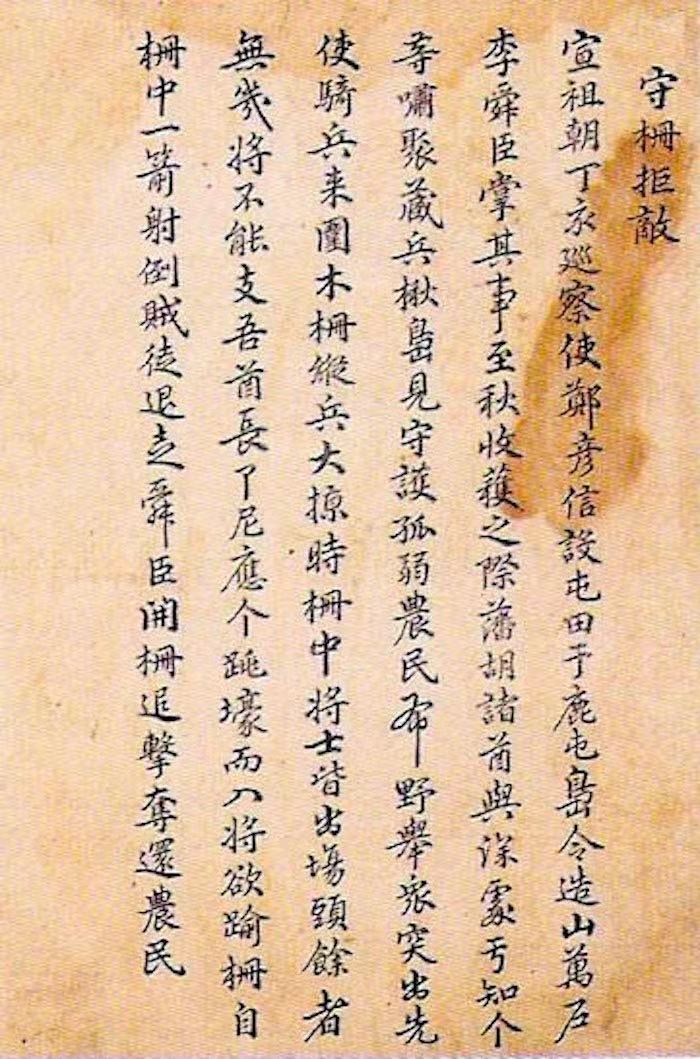 守柵拒敵
宣祖朝丁亥巡察使鄭彦信設屯田于鹿屯島令造山萬戶
李舜臣掌其事至秋收穫之際藩胡諸酋與深處亐知个
等嘯聚藏兵楸島見守護孤弱農民布野舉衆突出先
使騎兵来圍木柵縱兵大掠時柵中将士皆出場頭餘者
無幾将不能支吾酋長了尼應个跳壕而入将欲踰柵自
柵中一箭射倒賊徒退走舜臣開柵追擊奪還農民